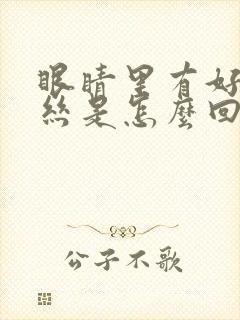 眼睛里有好
丝是怎麼回
公子不歌